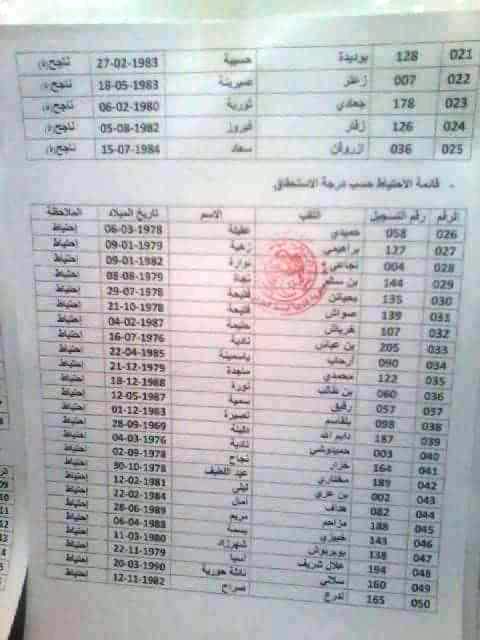 021 128 بوديدة حسيبة 27-02-1983 ناجح(ة)
022 007 زعتر صبرينة 18-05-1983 ناجح(ة)
023 178 جعادي نورية 06-02-1980 ناجح(ة)
024 126 زقار فيروز 05-08-1982 ناجح(ة)
025 036 ازروقن سعاد 15-07-1984 ناجح(ة)
- قائمة الاحتياط حسب درجة الاستحقاق.
الرقم رقم التسجيل اللقب الاسم تاريخ الميلاد الملاحظة
026 058 حميدي عقيلة 06-03-1978 إحتياط
027 127 براهيمي زهية 09-01-1979 إحتياط
028 004 نوارة 09-01-1982 إحتياط
029 144 نجاة 08-08-1979 إحتياط
030 135 يحياتن فتيحة 29-07-1978 إحتياط
031 139 صواش فتيحة 21-10-1978 إحتياط
032 107 حليمة 04-02-1987 إحتياط
033 205 بن عباس نادية 16-07-1976 إحتياط
034 090 أرحاب ياسمينة 22-04-1985 إحتياط
035 122 محمدي ماجدة 21-12-1979 إحتياط
036 060 بن طالب نورة 18-12-1988 إحتياط
037 057 رفيق سمية 12-05-1987 إحتياط
038 098 بلقاسم نصيرة 01-12-1983 إحتياط
039 187 دايم الله 28-09-1969 إحتياط
040 003 نادية 04-03-1976 إحتياط
041 164 خراز نجاح 02-09-1978 إحتياط
042 189 مختاري عبد اللطيف 30-10-1978 إحتياط
043 002 بن عزي ليلى 12-02-1981 إحتياط
044 082 هداف أمال 22-02-1984 إحتياط
045 188 مزاحم مريم 28-06-1989 إحتياط
046 143 خبيزي 06-04-1988 إحتياط
047 138 شهرزاد 11-03-1980 إحتياط
048 194 علال شريف آسيا 22-11-1979 إحتياط
049 160 سلامي نائلة حورية 20-03-1990 إحتياط
050 165 لدرع صراح 12-11-1982 إحتياط